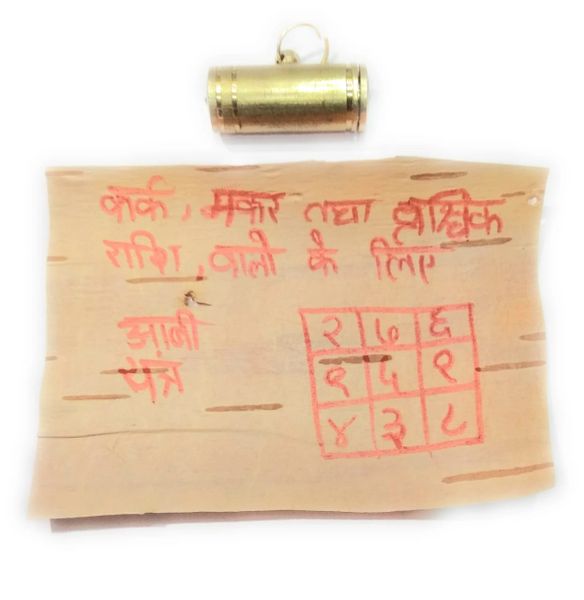 कर्क, मकर तथा व्रश्चिक
राशि, वालो के लिए
यंत्र
२ ७ ६
९ ५ १
४ ३ ८